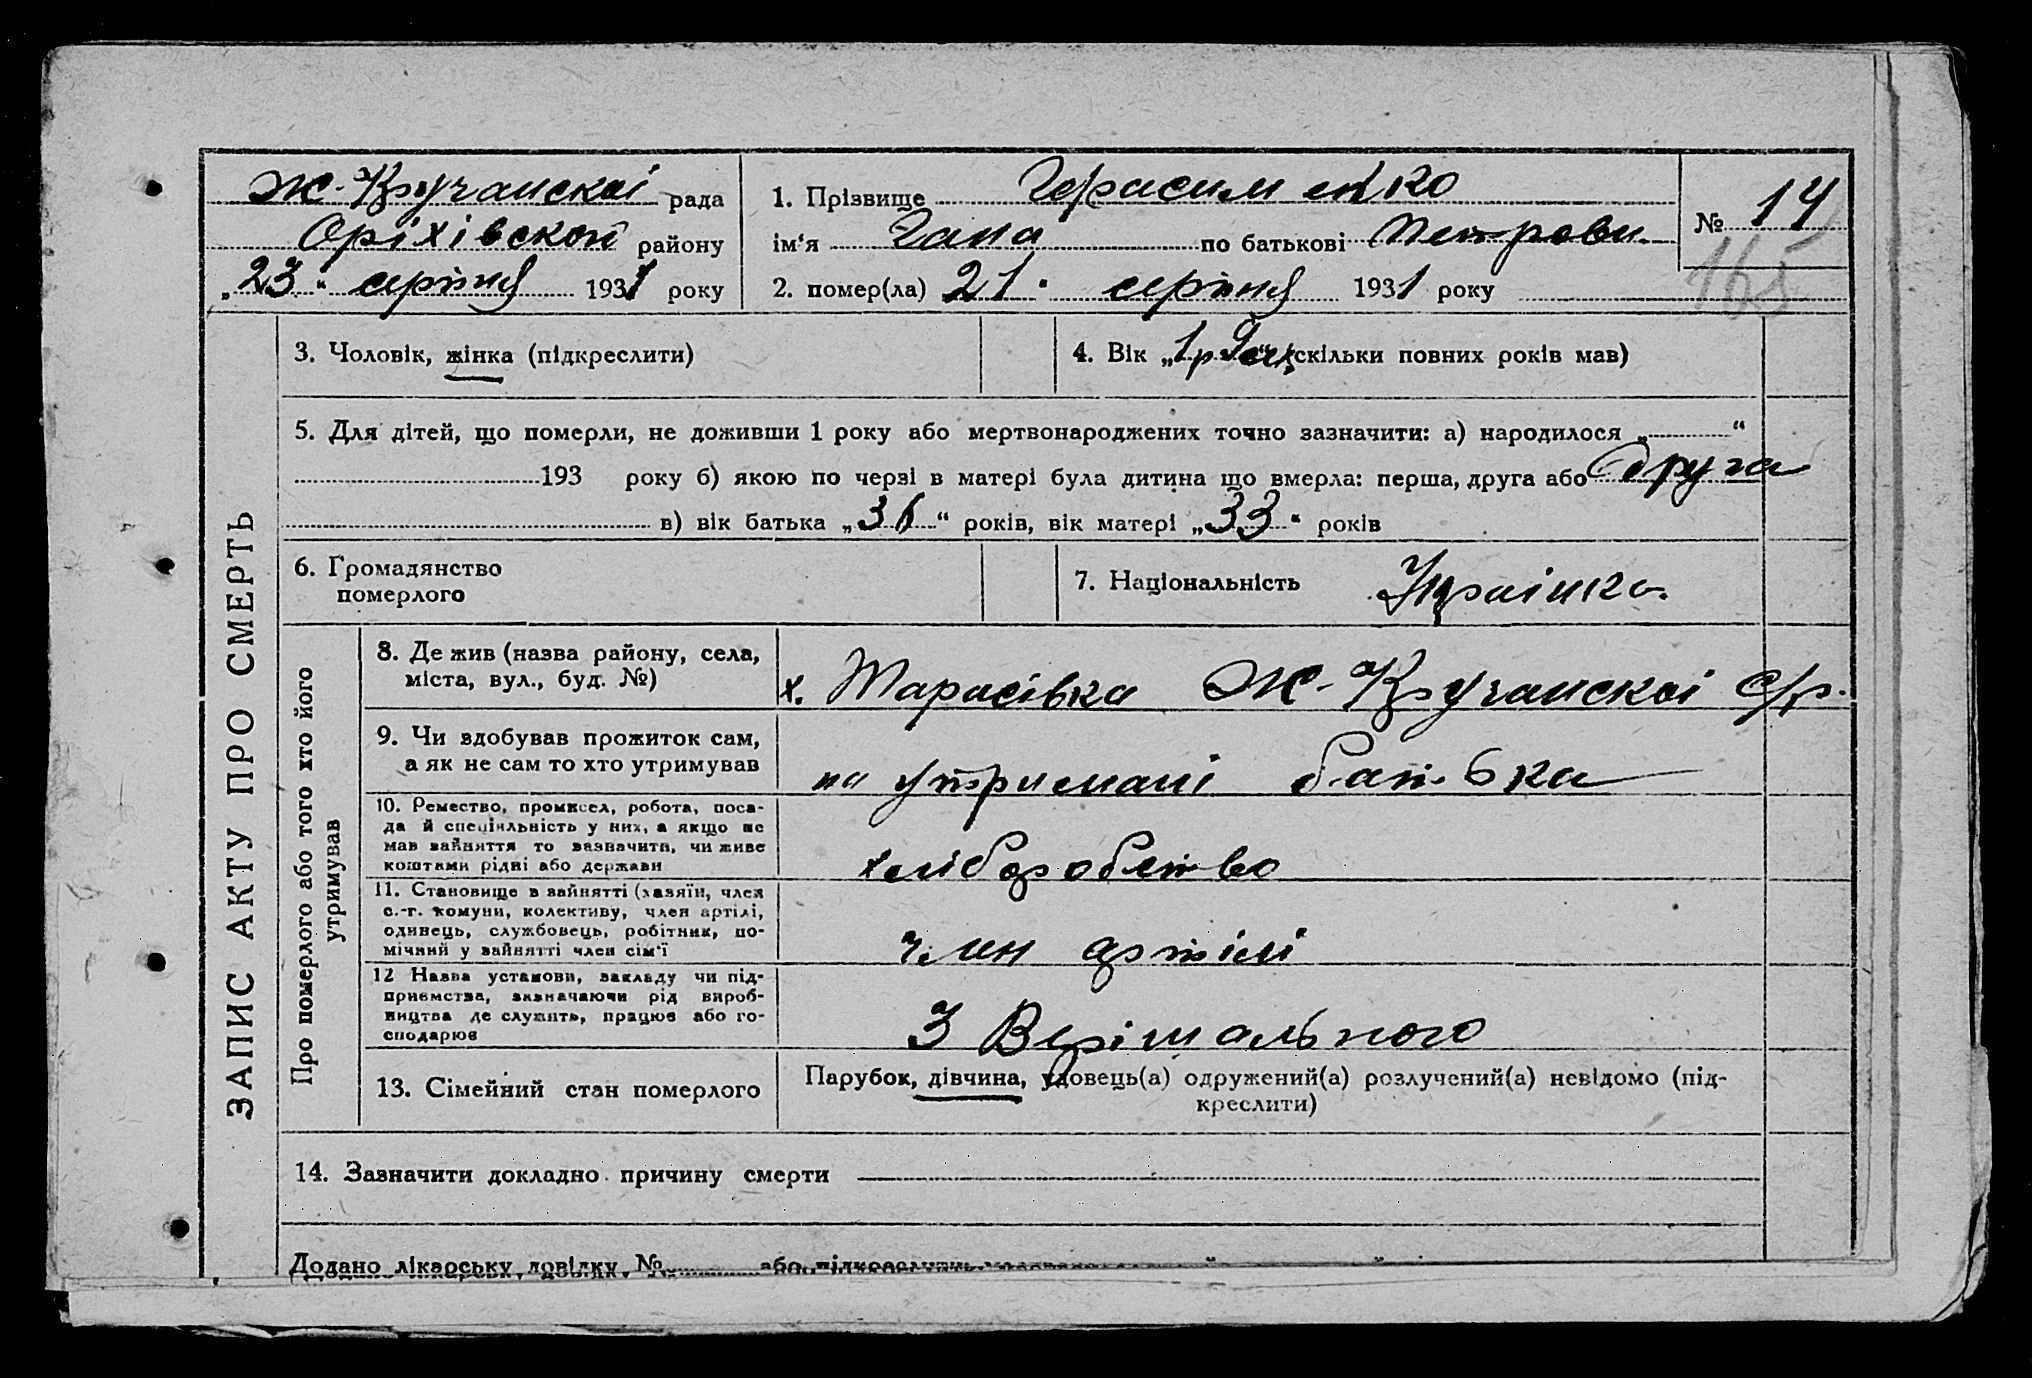 Ж-Кручанскоі рада
Оріхівскої району
„23“ серпня 1931 року
1. Прізвище Герасименко
ім'я Гана по батькові Петровн.
2. помер(ла) 21 серпня 1931 року
№ 14
165
ЗАПИС АКТУ ПРО СМЕРТЬ
3. Чоловік, жінка (підкреслити)
4. Вік „1 р 9 скільки повних років мав)
5. Для дітей, що померли, не доживши 1 року або мертвонароджених точно зазначити: а) народилося „ “
193 року б) якою по черзі в матері була дитина що вмерла: перша, друга або друга
в) вік батька „36“ років, вік матері „33“ років
6. Громадянство
померлого
7. Національність Украінка.
Про померлого або того хто його
утримував
8. Де жив (назва району, села,
міста, вул., буд. №)
х. Тарасівка Ж-Кручанскоі с/р.
9. Чи здобував прожиток сам,
а як не сам то хто утримував
на утримані батька
10. Ремество, промисел, робота, поса-
да й спеціяльність у них, а якщо не
мав зайняття то зазначити, чи живе
коштами рідні або держави
хліборобство
11. Становище в зайнятті (хазяїн, член
с.-г. комуни, колективу, член артілі,
одинець, службовець, робітник, по-
мічний у зайнятті член сім'ї
член артілі
12 Назва установи, закладу чи під-
приємства, зазначаючи рід вироб-
ництва де служить, працює або го-
сподарює
З Вегішального
13. Сімейний стан померлого
Парубок, дівчина, удовець(а) одружений(а) розлучений(а) невідомо (під-
креслити)
14. Зазначити докладно причину смерти
Додано лікарську довідку № або підкреслити